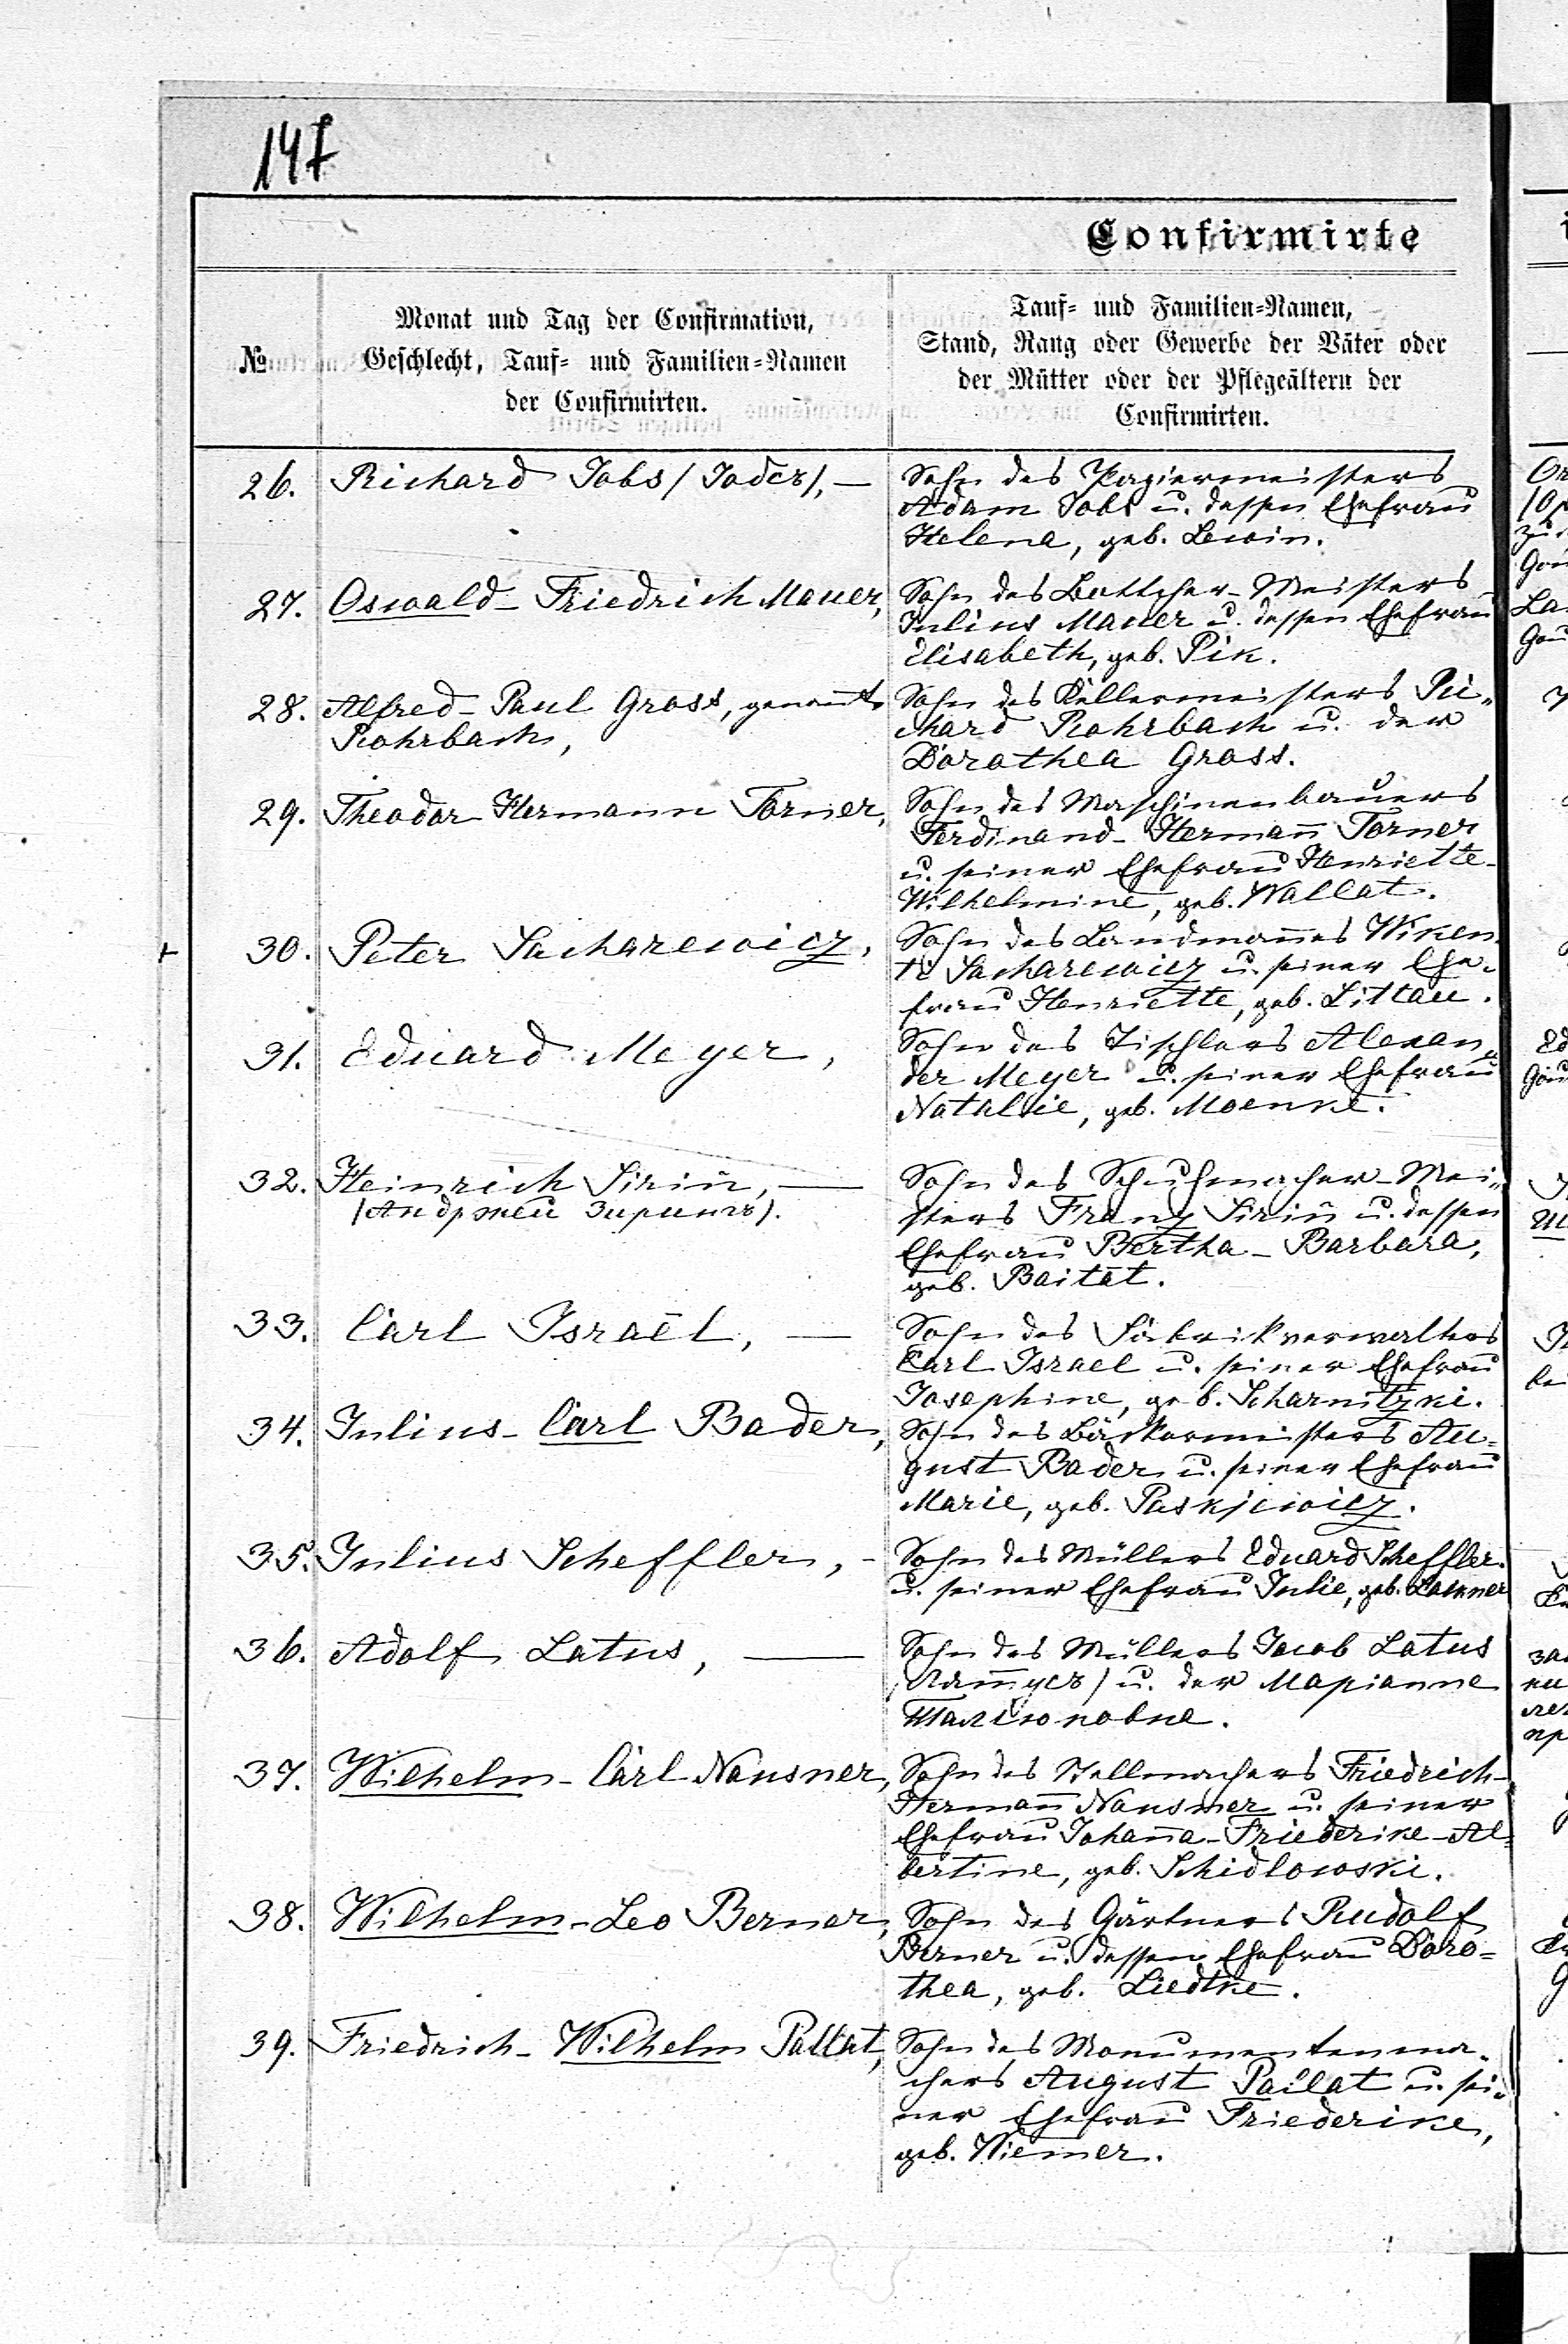 147
Confirmirte
№
Monat und Tag der Confirmation,
Geschlecht, Tauf- und Familien-Namen
der Confirmirten.
Tauf- und Familien-Namen,
Stand, Rang oder Gewerbe der Väter oder
der Mütter oder der Pflegeältern der
Confirmirten.
26. Richard Jobs /Іобсъ/, —
Sohn des Papiermeisters
Adam Jobs u. dessen Ehefrau
Helena, geb. Lewin.
27. Oswald-Friedrich Mauer,
Sohn des Bottcher-Meisters
Julius Mauer u. dessen Ehefrau
Elisabeth, geb. Pik.
28. Alfred-Paul Gross, genannt
Rohrbach,
Sohn des Kellermeisters Ri-
chard Rohrbach u. der
Dorothea Gross.
29. Theodor-Hermann Torner,
Sohn des Maschinenbauers
Ferdinand-Hermann̄ Torner
u. seiner Ehefrau Henriette-
Wilhelmine, geb. Wallat.
+ 30. Peter Sacharewicz,
Sohn des Landmannes Wiken-
ti Sacharewicz u. seiner Ehe-
frau Henriette, geb. Littau.
31. Eduard Meyer,
Sohn des Tischlers Alexan-
der Meyer u. seiner Ehefrau
Natalie, geb. Moenke.
32. Heinrich Sirin̄, —
/Андржей Зирингъ/.
Sohn des Schuhmacher-Mei-
sters Franz Sirin̄ u. dessen
Ehefrau Bertha-Barbara,
geb. Baitat.
33. Carl Israël, —
Sohn des Fabrikverwalters
Carl Israel u. seiner Ehefrau
Josephine, geb. Scharnitzki.
34. Julius-Carl Bader,
Sohn des Bäckermeisters Au=
gust Bader u. seiner Ehefrau
Marie, geb. Paskjewicz.
35. Julius Scheffler, -
Sohn des Müllers Eduard Scheffler
u. seiner Ehefrau Julie, geb.
36. Adolf Latus, —
Sohn des Müllers Jacob Latus
/Латтусъ/ u. der Марianne
37. Wilhelm-Carl Nausner,
Sohn des Stellmachers Friedrich-
Herman̄ Nausner u. seiner
Ehefrau Johan̄a-Friederike-Al=
bertine, geb. Schidlowski.
38. Wilhelm-Leo Berner,
Sohn des Gärtners Rudolf
Berner u. dessen Ehefrau Doro=
thea, geb. Liedtke.
39. Friedrich-Wilhelm Pallat,
Sohn des Monumentenma-
chers August Pallat u. sei-
ner Ehefrau Friederike,
geb. Wiemer.